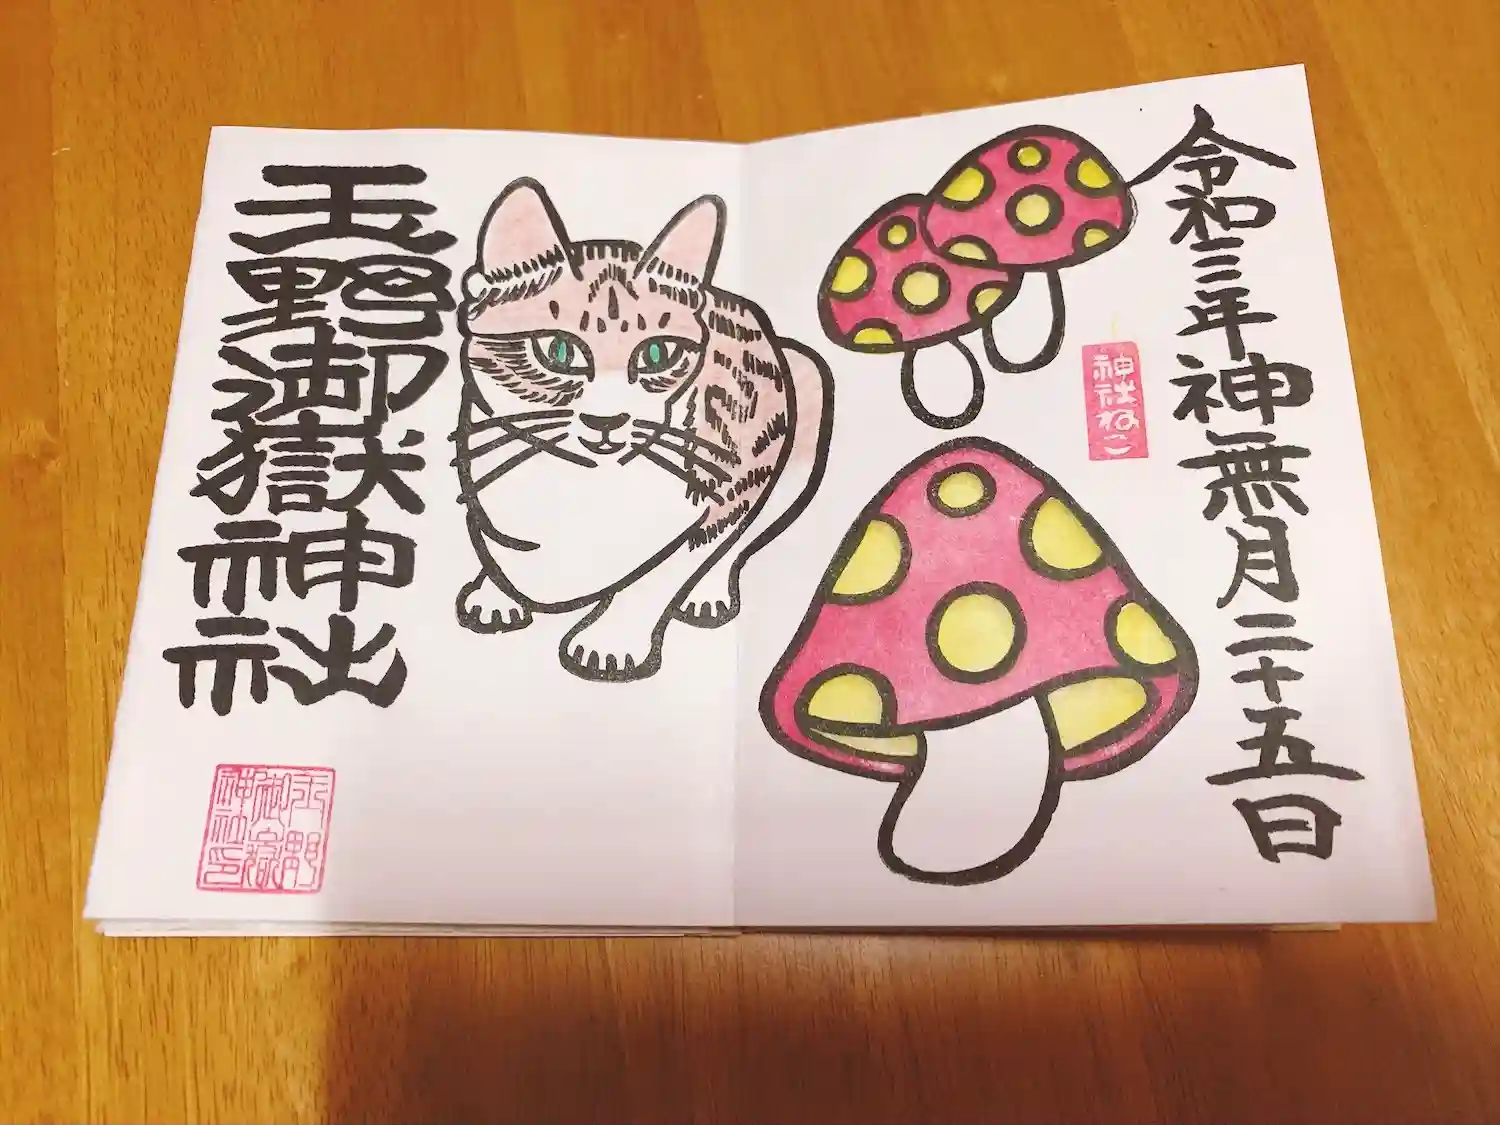 令和三年神無月二十五日
神社ねこ
玉野御嶽神社
玉野
御嶽
神社印